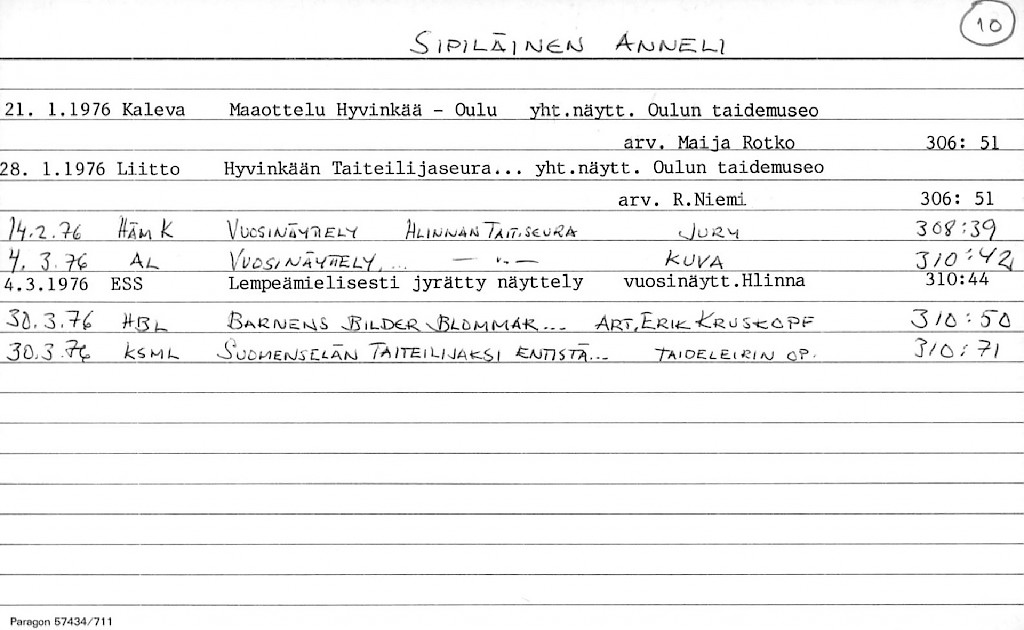 10
SIPILÄINEN ANNELI
21. 1.1976 Kaleva Maaottelu Hyvinkää - Oulu yht.näytt. Oulun taidemuseo
arv. Maija Rotko 306: 51
28. 1.1976 Liitto Hyvinkään Taiteilijaseura... yht.näytt. Oulun taidemuseo
arv. R.Niemi 306: 51
14.2.76 HÄM K VUOSINÄYTTELY HLINNAN TAIT.SEURA JURY 308:39
4.3.76 AL VUOSINÄYTTELY... — " — KUVA 310:42
4.3.1976 ESS Lempeämielisesti jyrätty näyttely vuosinäytt.Hlinna 310:44
30.3.76 HBL BARNENS BILDER BLOMMAR... ART, ERIK KRUSKOPF 310:50
30.3.76 KSML SUOMENSELÄN TAITEILIJAKSI ENTISTÄ... TAIDELEIRIN OP. 310:71
Paragon 57434/711